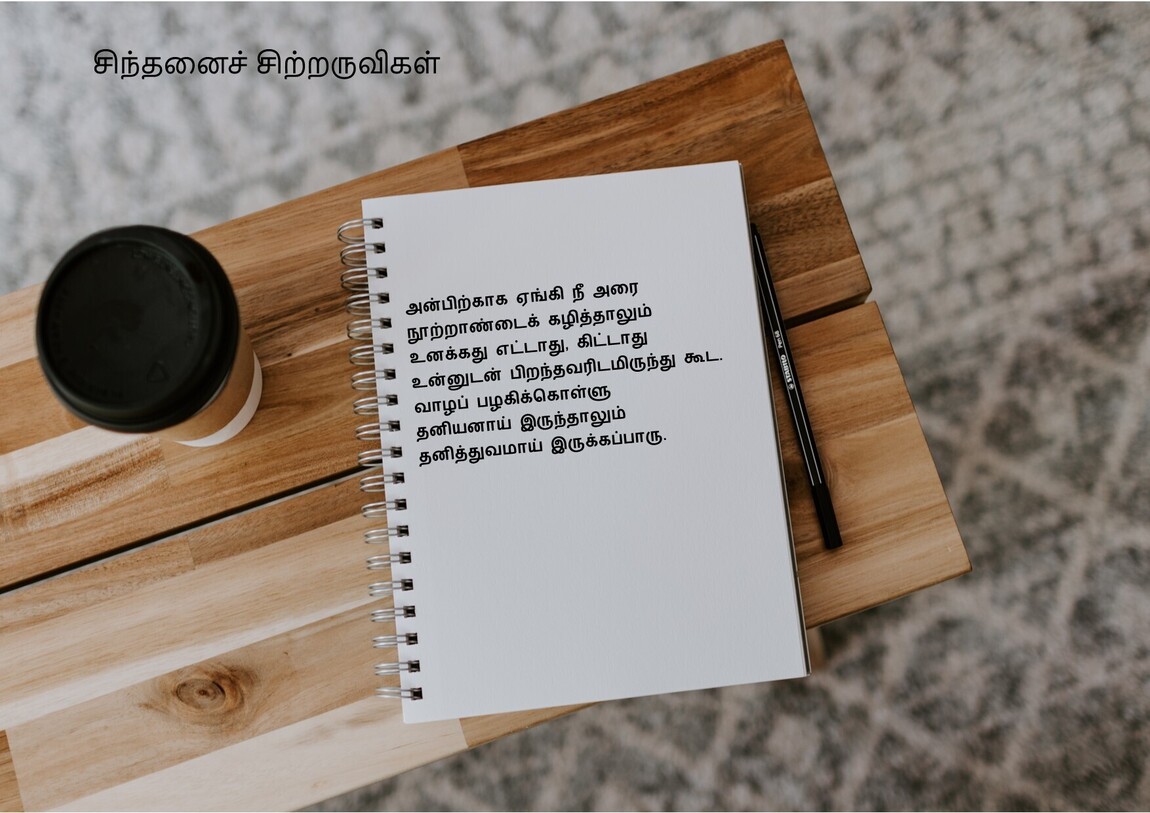 சிந்தனைச் சிற்றருவிகள்
அன்பிற்காக ஏங்கி நீ அரை
நூற்றாண்டைக் கழித்தாலும்
உனக்கது எட்டாது, கிட்டாது
உன்னுடன் பிறந்தவரிடமிருந்து கூட.
வாழப் பழகிக்கொள்ளு
தனியனாய் இருந்தாலும்
தனித்துவமாய் இருக்கப்பாரு.
STABILO